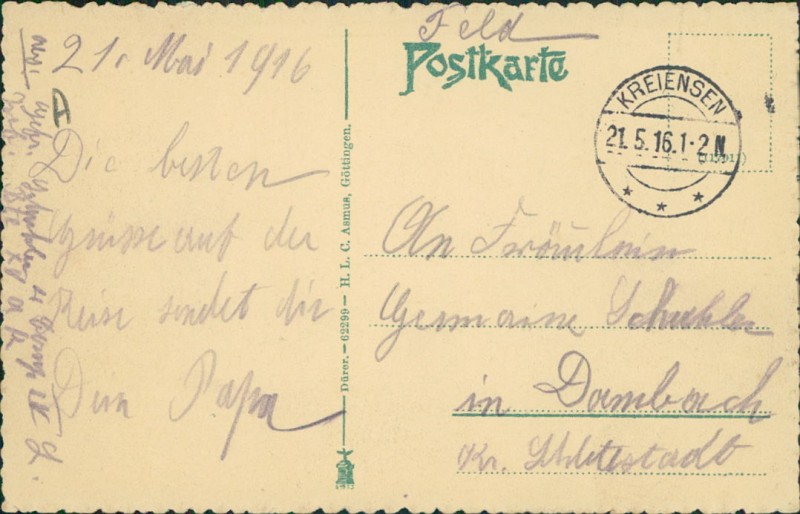 21. Mai 1916
Die besten
Grüsse auf der
Reise sendet dir
Dein Papa
A
Feld
Postkarte
KREIENSEN
21.5.16.1-2 N
* * *
An Fräulein
Germaine Schuhler
in Dambach
Kr. Schlettstadt
Dürer. — 62299 — H. L. C. Asmus, Göttingen.